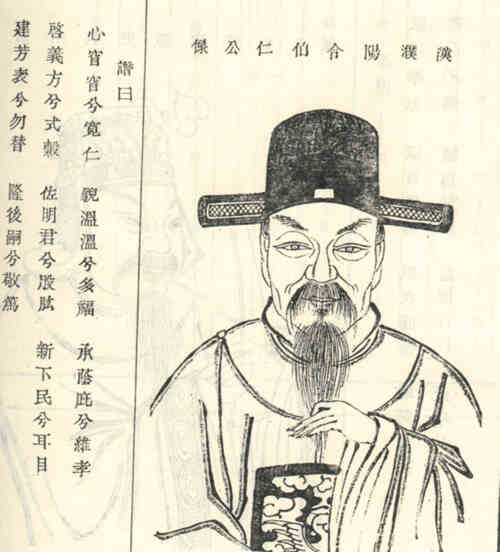 漢濮陽令伯仁公傑
讚曰
心窅窅兮寬仁 貌溫溫兮多福 承蔭庇兮維孝
啓義方兮式穀 佐明君兮股肱 新下民兮耳目
建芳表兮勿替 隆後嗣兮敬篤